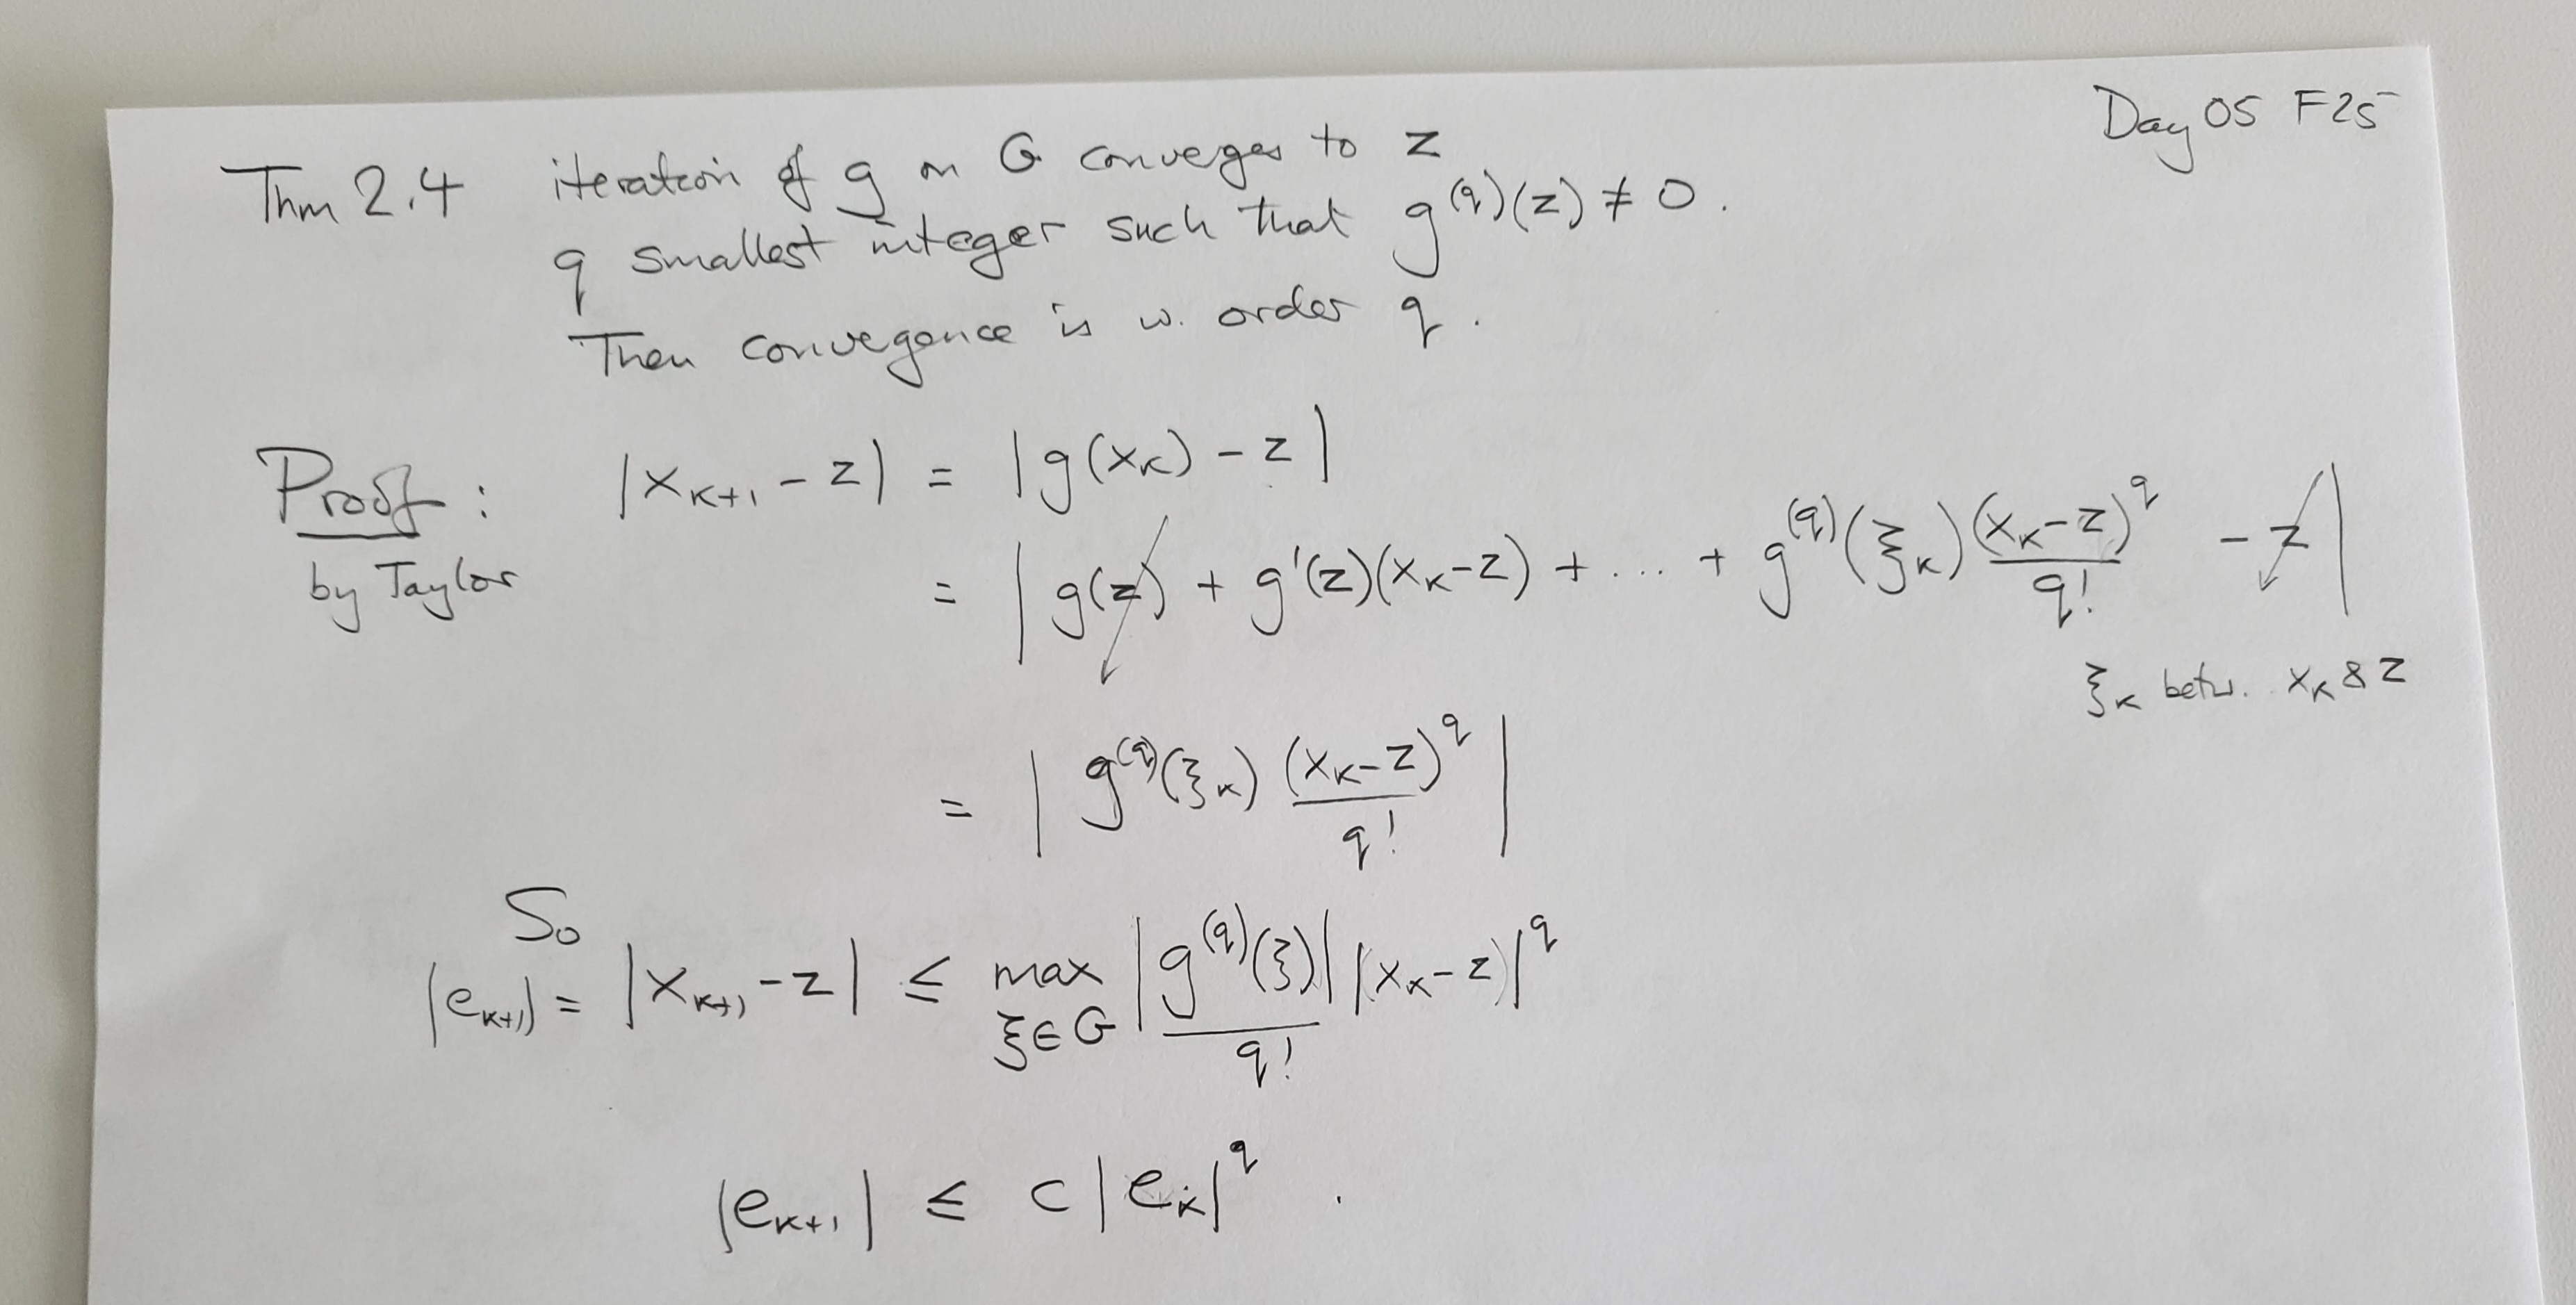 Day 05 F25
Thm 2.4 iteration of g on G converges to z
q smallest integer such that g^(q)(z) ≠ 0.
Then convergence is w. order q.
Proof: |x_{k+1} - z| = |g(x_k) - z|
by Taylor = |g(z) + g'(z)(x_k - z) + ... + g^(q)(ξ_k) (x_k - z)^q / q! - z|
ξ_k betw. x_k & z
= |g^(q)(ξ_k) (x_k - z)^q / q!|
So
|e_{k+1}| = |x_{k+1} - z| ≤ max_{ξ∈G} |g^(q)(ξ)| / q! |x_k - z|^q
|e_{k+1}| ≤ c |e_k|^q .